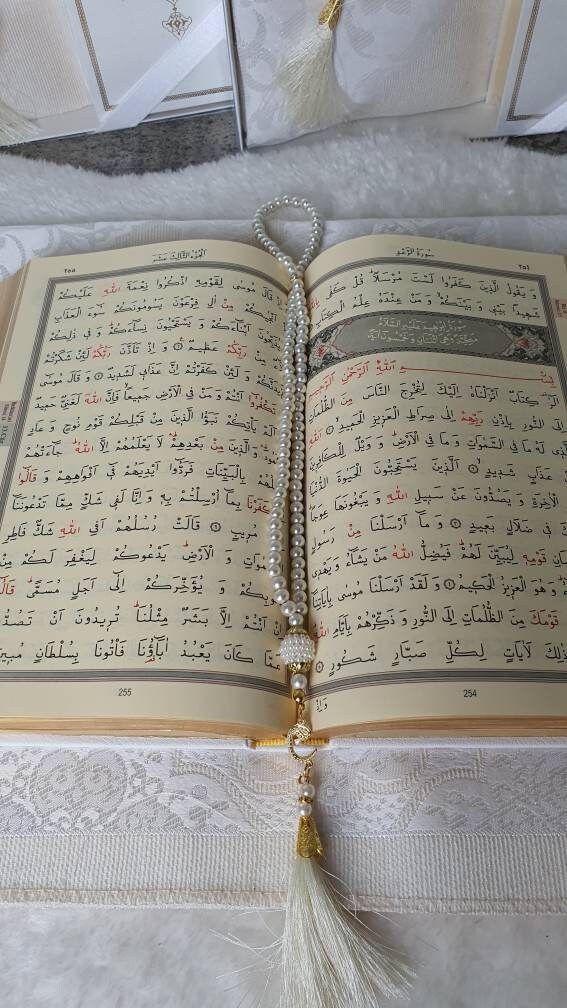 سُورَةُ الرَّعْدِ ٢٥٤
وَ يَقُولُ الَّذِينَ كَفَرُوا لَسْتَ مُرْسَلًا قُلْ كَفَى
شَهِيدًا بَيْنِي وَ بَيْنَكُمْ وَ مَنْ عِنْدَهُ عِلْمُ الْكِتَابِ
سُورَةُ اِبْرٰهِيمَ عَلَيْهِ السَّلَامُ
مَكِّيَّةٌ وَهِيَ اثْنَتَانِ وَخَمْسُونَ اٰيَةً
بِسْمِ اللهِ الرَّحْمٰنِ الرَّحِيمِ
الٓرٰ كِتَابٌ اَنْزَلْنَاهُ اِلَيْكَ لِتُخْرِجَ النَّاسَ مِنَ الظُّلُمَاتِ
اِلَى النُّورِ بِاِذْنِ رَبِّهِمْ اِلٰى صِرَاطِ الْعَزِيزِ الْحَمِيدِ ١ اَللهِ
الَّذِي لَهُ مَا فِي السَّمٰوَاتِ وَ مَا فِي الْاَرْضِ وَ وَيْلٌ لِلْكَافِرِينَ
مِنْ عَذَابٍ شَدِيدٍ ٢ اَلَّذِينَ يَسْتَحِبُّونَ الْحَيٰوةَ الدُّنْيَا
الْاٰخِرَةِ وَ يَصُدُّونَ عَنْ سَبِيلِ اللهِ وَ يَبْغُونَهَا عِوَجًا
فِي ضَلَالٍ بَعِيدٍ ٣ وَ مَٓا اَرْسَلْنَا مِنْ رَسُولٍ
قَوْمِهِ لِيُبَيِّنَ لَهُمْ فَيُضِلُّ اللهُ مَنْ يَشَٓاءُ وَ يَهْدِي
وَ هُوَ الْعَزِيزُ الْحَكِيمُ ٤ وَ لَقَدْ اَرْسَلْنَا مُوسٰى بِاٰيَاتِنَٓا
قَوْمَكَ مِنَ الظُّلُمَاتِ اِلَى النُّورِ وَ ذَكِّرْهُمْ بِاَيَّامِ اللهِ
ذٰلِكَ لَاٰيَاتٍ لِكُلِّ صَبَّارٍ شَكُورٍ ٥
وَاِذْ
254
اَلْجُزْءُ الثَّالِثَ عَشَرَ ٢٥٥
قَالَ مُوسٰى لِقَوْمِهِ اذْكُرُوا نِعْمَةَ اللهِ عَلَيْكُمْ
اَنْجٰيكُمْ مِنْ اٰلِ فِرْعَوْنَ يَسُومُونَكُمْ سُٓوءَ الْعَذَابِ
اَبْنَٓاءَكُمْ وَ يَسْتَحْيُونَ نِسَٓاءَكُمْ وَ فِي ذٰلِكُمْ
مِنْ رَبِّكُمْ عَظِيمٌ ٦ وَ اِذْ تَاَذَّنَ رَبُّكُمْ لَئِنْ شَكَرْتُمْ
وَ لَئِنْ كَفَرْتُمْ اِنَّ عَذَابِي لَشَدِيدٌ ٧ وَ قَالَ مُوسٰٓى
تَكْفُرُٓوا اَنْتُمْ وَ مَنْ فِي الْاَرْضِ جَمِيعًا فَاِنَّ اللهَ لَغَنِيٌّ حَمِيدٌ
يَاْتِكُمْ نَبَؤُا الَّذِينَ مِنْ قَبْلِكُمْ قَوْمِ نُوحٍ وَ عَادٍ
وَ الَّذِينَ مِنْ بَعْدِهِمْ لَا يَعْلَمُهُمْ اِلَّا اللهُ جَٓاءَتْهُمْ
بِالْبَيِّنَاتِ فَرَدُّٓوا اَيْدِيَهُمْ فِٓي اَفْوَاهِهِمْ وَ قَالُٓوا
كَفَرْنَا بِمَٓا اُرْسِلْتُمْ بِهِ وَ اِنَّا لَفِي شَكٍّ مِمَّا تَدْعُونَنَٓا
مُرِيبٍ ٩ قَالَتْ رُسُلُهُمْ اَفِي اللهِ شَكٌّ فَاطِرِ
وَ الْاَرْضِ يَدْعُوكُمْ لِيَغْفِرَ لَكُمْ مِنْ
وَ يُؤَخِّرَكُمْ اِلٰٓى اَجَلٍ مُسَمًّى قَالُٓوا
اِنْ اَنْتُمْ اِلَّا بَشَرٌ مِثْلُنَا تُرِيدُونَ اَنْ تَصُدُّونَا
عَمَّا كَانَ يَعْبُدُ اٰبَٓاؤُنَا فَاْتُونَا بِسُلْطَانٍ مُبِينٍ
255